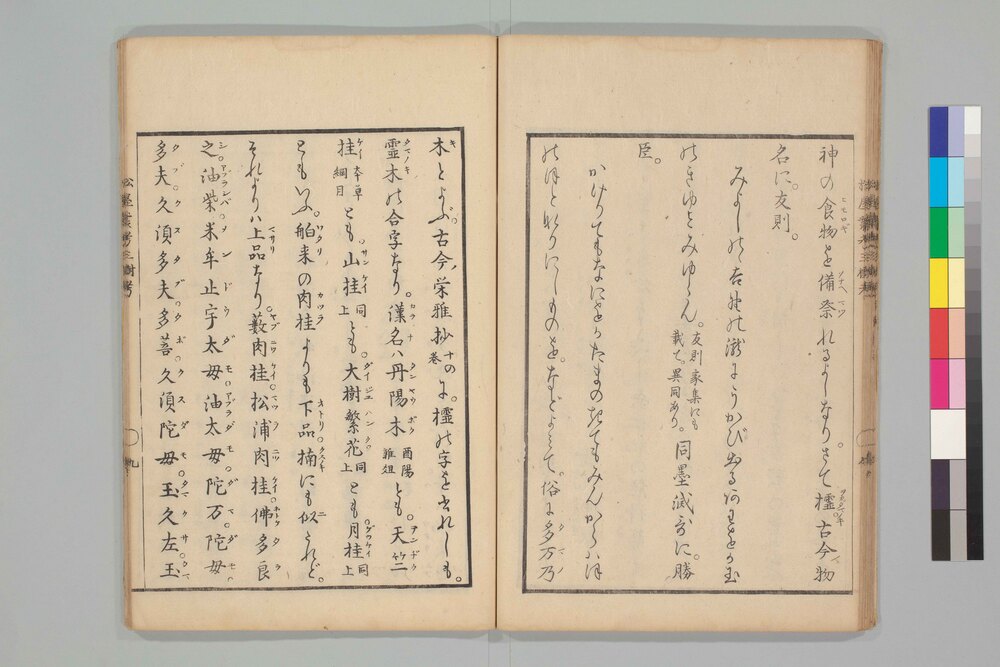 神の食物を備祭れるよしなりさて櫺古今物
名に友則。
みよしのゝ吉野の瀧にうかびいづるあわをか玉
のきゆとみゆらん。友則家集にも載て。異同あり。同墨滅哥に。勝
臣。
かけりてもなにをかたまのきてもみんからハほ
のほとなりにしものを。などよみて。俗に多万乃
木とよぶ。古今栄雅抄十の巻に。櫺の字を書れしも。
霊木の合字なり。漢名ハ丹陽木酉陽雑俎とも。天竺
桂本草綱目とも。山桂同上とも。大樹繁花同上とも月桂同上
ともいふ。舶来の肉桂よりも下品楠にも似たれど。
それよりハ上品なり。藪肉桂松浦肉桂佛多良
之油柴米牟止宇太毋油太毋陀万陀毋
多夫久須多夫多菩久須陀毋玉久左玉
松屋叢考三樹考
九